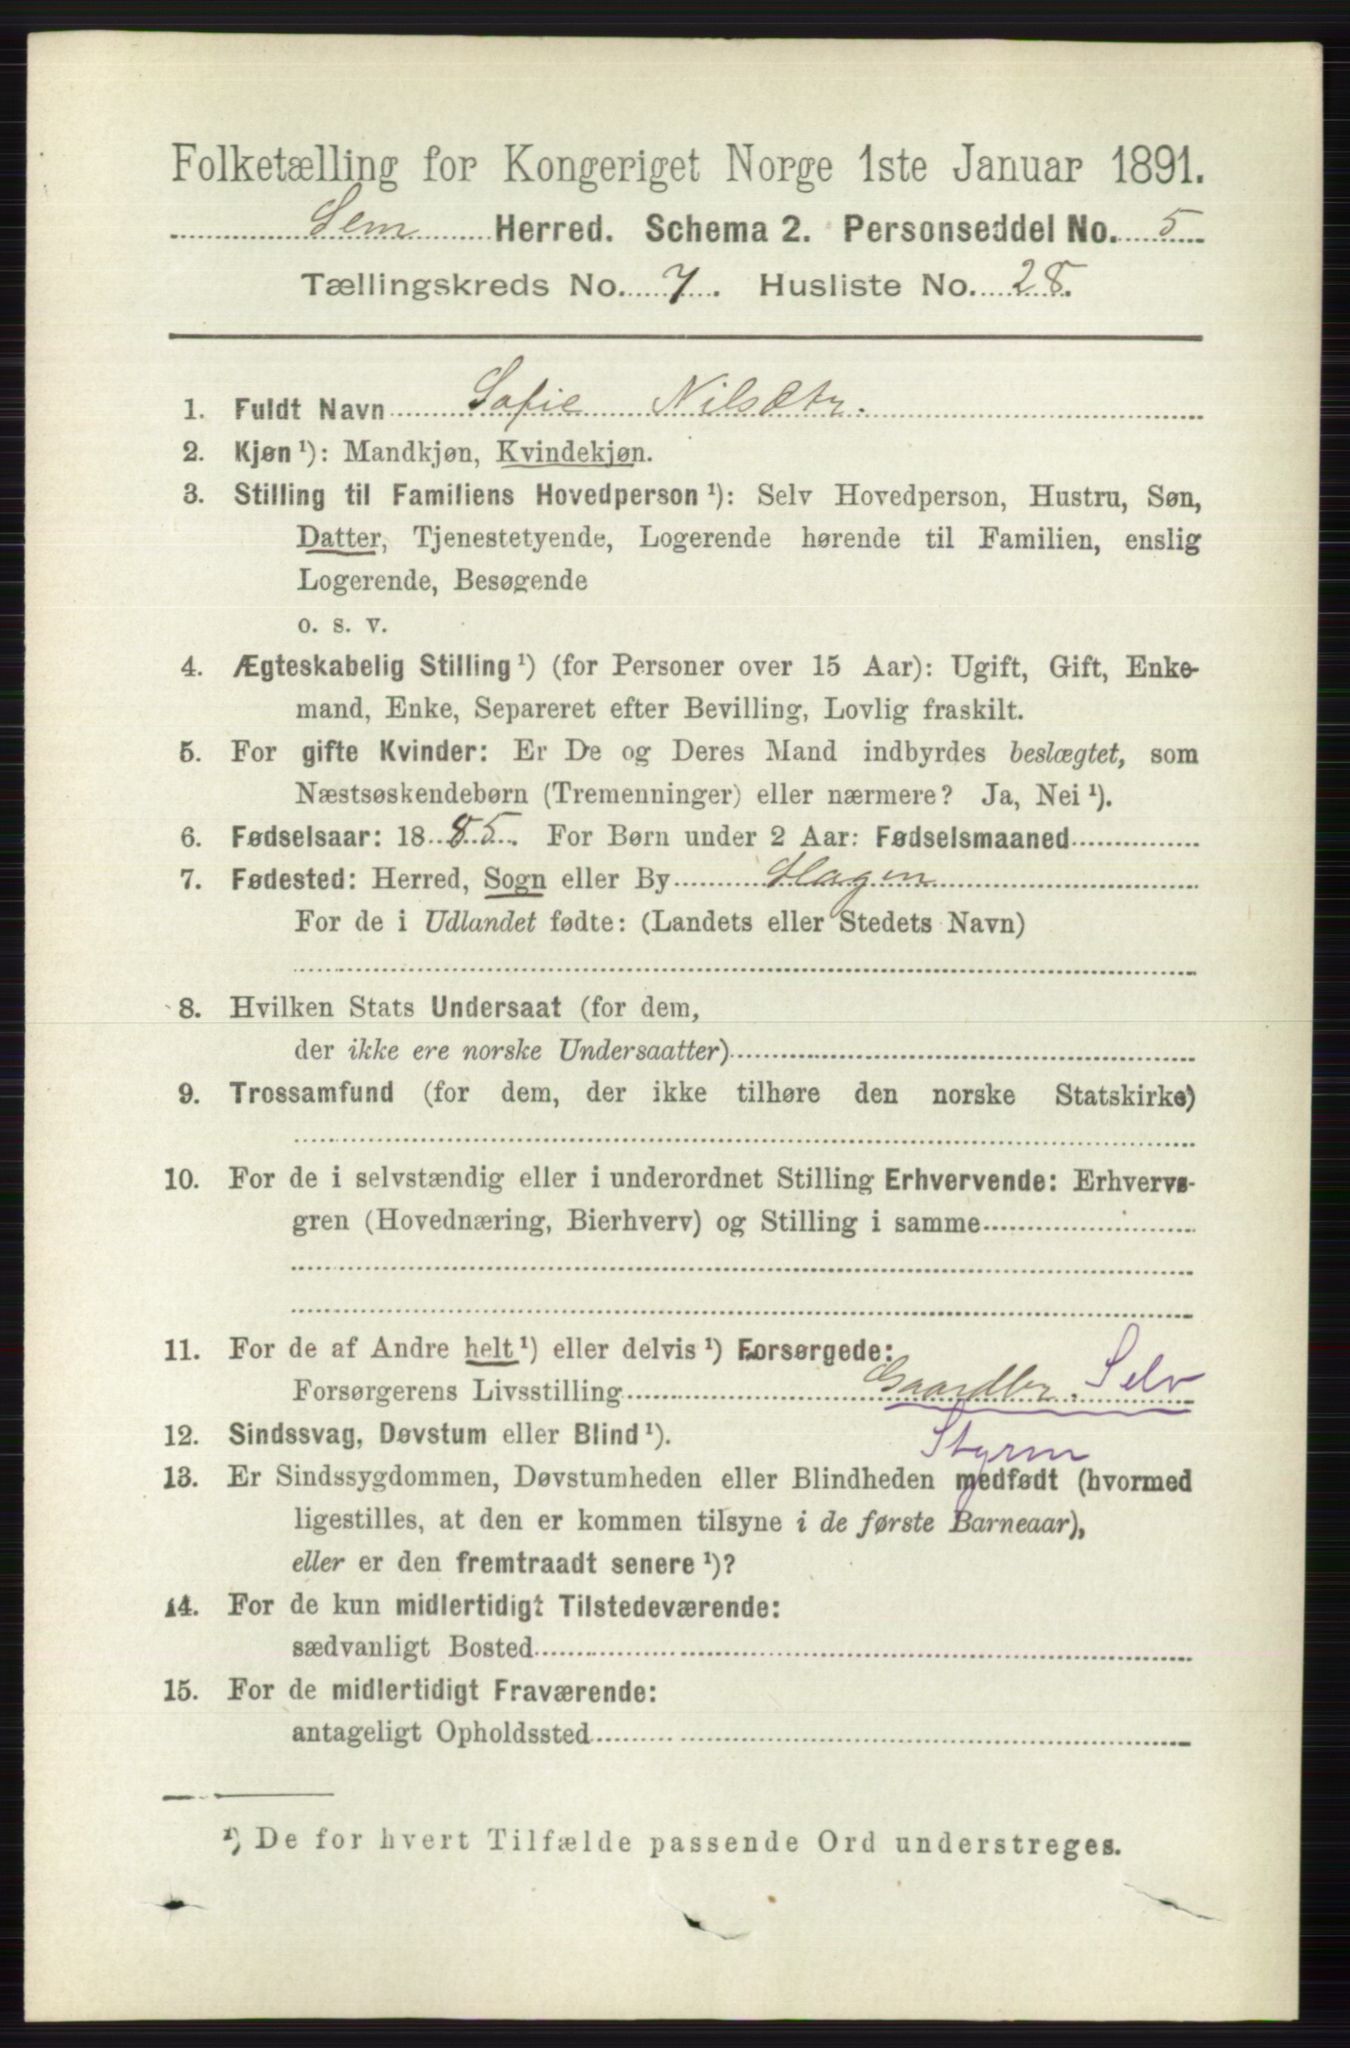 Folketælling for Kongeriget Norge 1ste Januar 1891.
Sem Herred. Schema 2. Personseddel No. 5
Tællingskreds No. 7. Husliste No. 28.
1. Fuldt Navn Sofie Nilsdtr.
2. Kjøn ¹): Mandkjøn, Kvindekjøn.
3. Stilling til Familiens Hovedperson ¹): Selv Hovedperson, Hustru, Søn,
Datter, Tjenestetyende, Logerende hørende til Familien, enslig
Logerende, Besøgende
o. s. v.
4. Ægteskabelig Stilling ¹) (for Personer over 15 Aar): Ugift, Gift, Enke-
mand, Enke, Separeret efter Bevilling, Lovlig fraskilt.
5. For gifte Kvinder: Er De og Deres Mand indbyrdes beslægtet, som
Næstsøskendebørn (Tremenninger) eller nærmere? Ja, Nei ¹).
6. Fødselsaar: 1885. For Børn under 2 Aar: Fødselsmaaned
7. Fødested: Herred, Sogn eller By Slagen
For de i Udlandet fødte: (Landets eller Stedets Navn)
8. Hvilken Stats Undersaat (for dem,
der ikke ere norske Undersaatter)
9. Trossamfund (for dem, der ikke tilhøre den norske Statskirke)
10. For de i selvstændig eller i underordnet Stilling Erhvervende: Erhvervs-
gren (Hovednæring, Bierhverv) og Stilling i samme
11. For de af Andre helt ¹) eller delvis ¹) Forsørgede:
Forsørgerens Livsstilling Gaardbr. Selv
12. Sindssvag, Døvstum eller Blind ¹). Styrm
13. Er Sindssygdommen, Døvstumheden eller Blindheden medfødt (hvormed
ligestilles, at den er kommen tilsyne i de første Barneaar),
eller er den fremtraadt senere ¹)?
14. For de kun midlertidigt Tilstedeværende:
sædvanligt Bosted
15. For de midlertidigt Fraværende:
antageligt Opholdssted
¹) De for hvert Tilfælde passende Ord understreges.